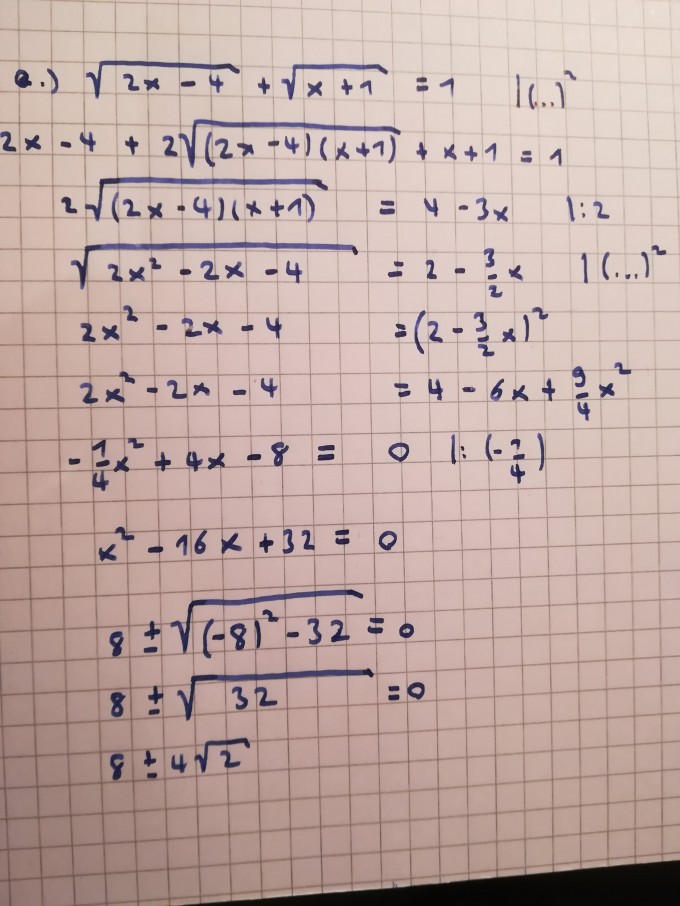 a.) √(2x - 4) + √(x + 1) = 1 |(...)²
2x - 4 + 2√((2x-4)(x+1)) + x+1 = 1
2√((2x-4)(x+1)) = 4 - 3x |:2
√(2x² - 2x - 4) = 2 - 3/2 x |(...)²
2x² - 2x - 4 = (2 - 3/2 x)²
2x² - 2x - 4 = 4 - 6x + 9/4 x²
-1/4 x² + 4x - 8 = 0 |: (-1/4)
x² - 16x + 32 = 0
8 ± √((-8)² - 32) = 0
8 ± √(32) = 0
8 ± 4√2